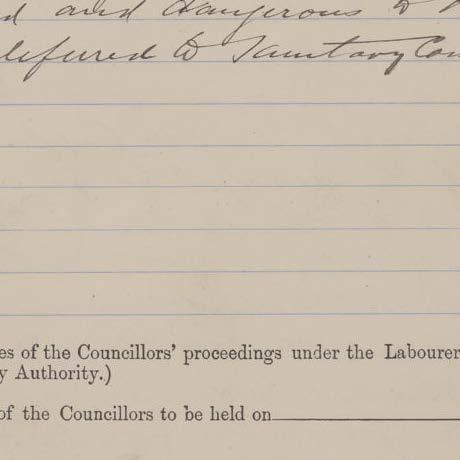 and dangerous to
Referred to Sanitary Com
es of the Councillors' proceedings under the Labourer
y Authority.)
of the Councillors to be held on